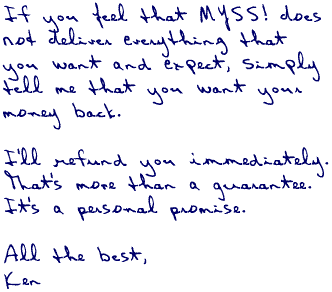 If you feel that MYSS! does
not deliver everything that
you want and expect, simply
tell me that you want your
money back.

I'll refund you immediately.
That's more than a guarantee.
It's a personal promise.

All the best,
Ken